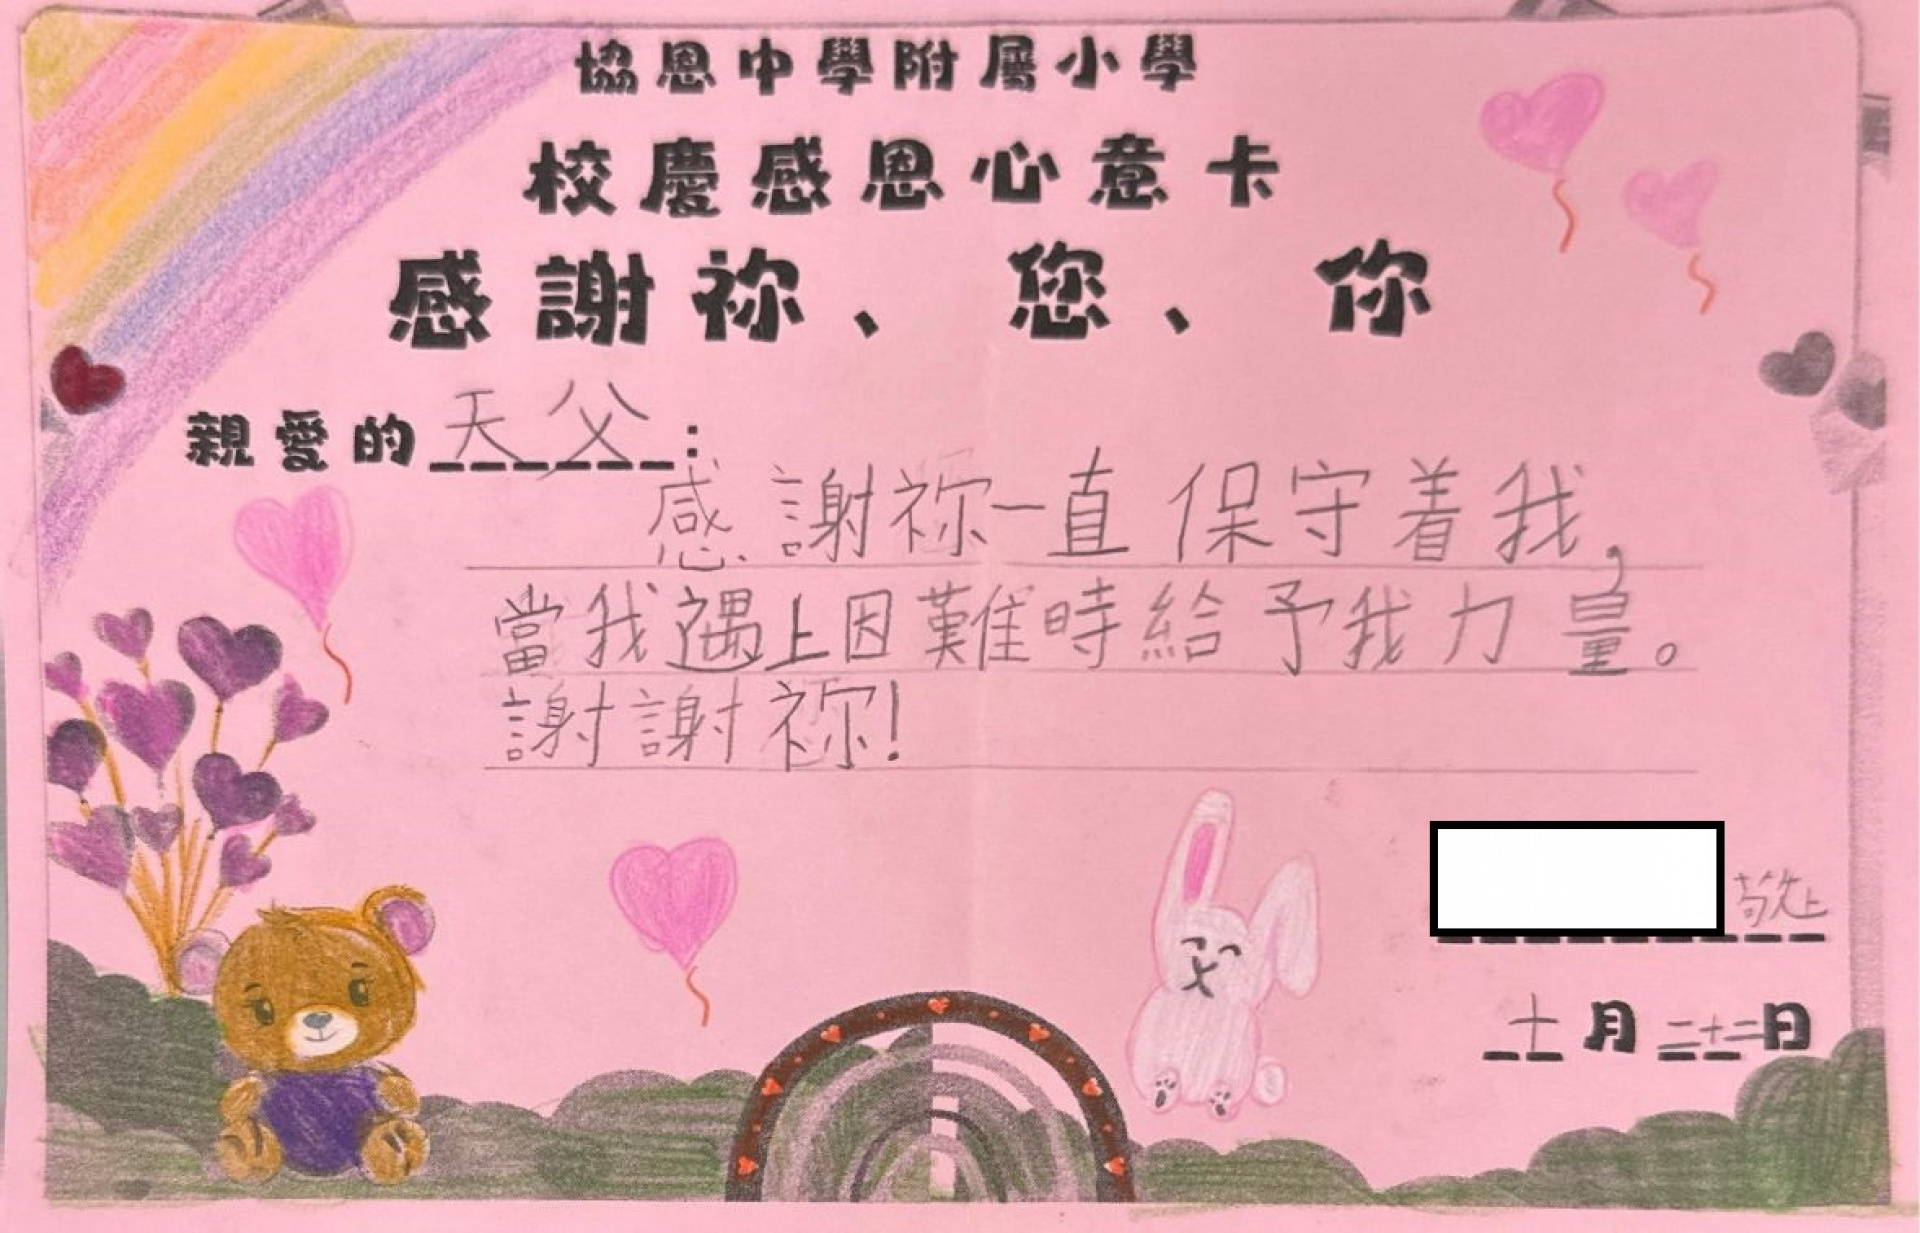 協恩中學附屬小學
校慶感恩心意卡
感謝祢、您、你
親愛的天父：
感謝祢一直保守着我，
當我遇上因難時給予我力量。
謝謝祢！
敬上
十月二十二日